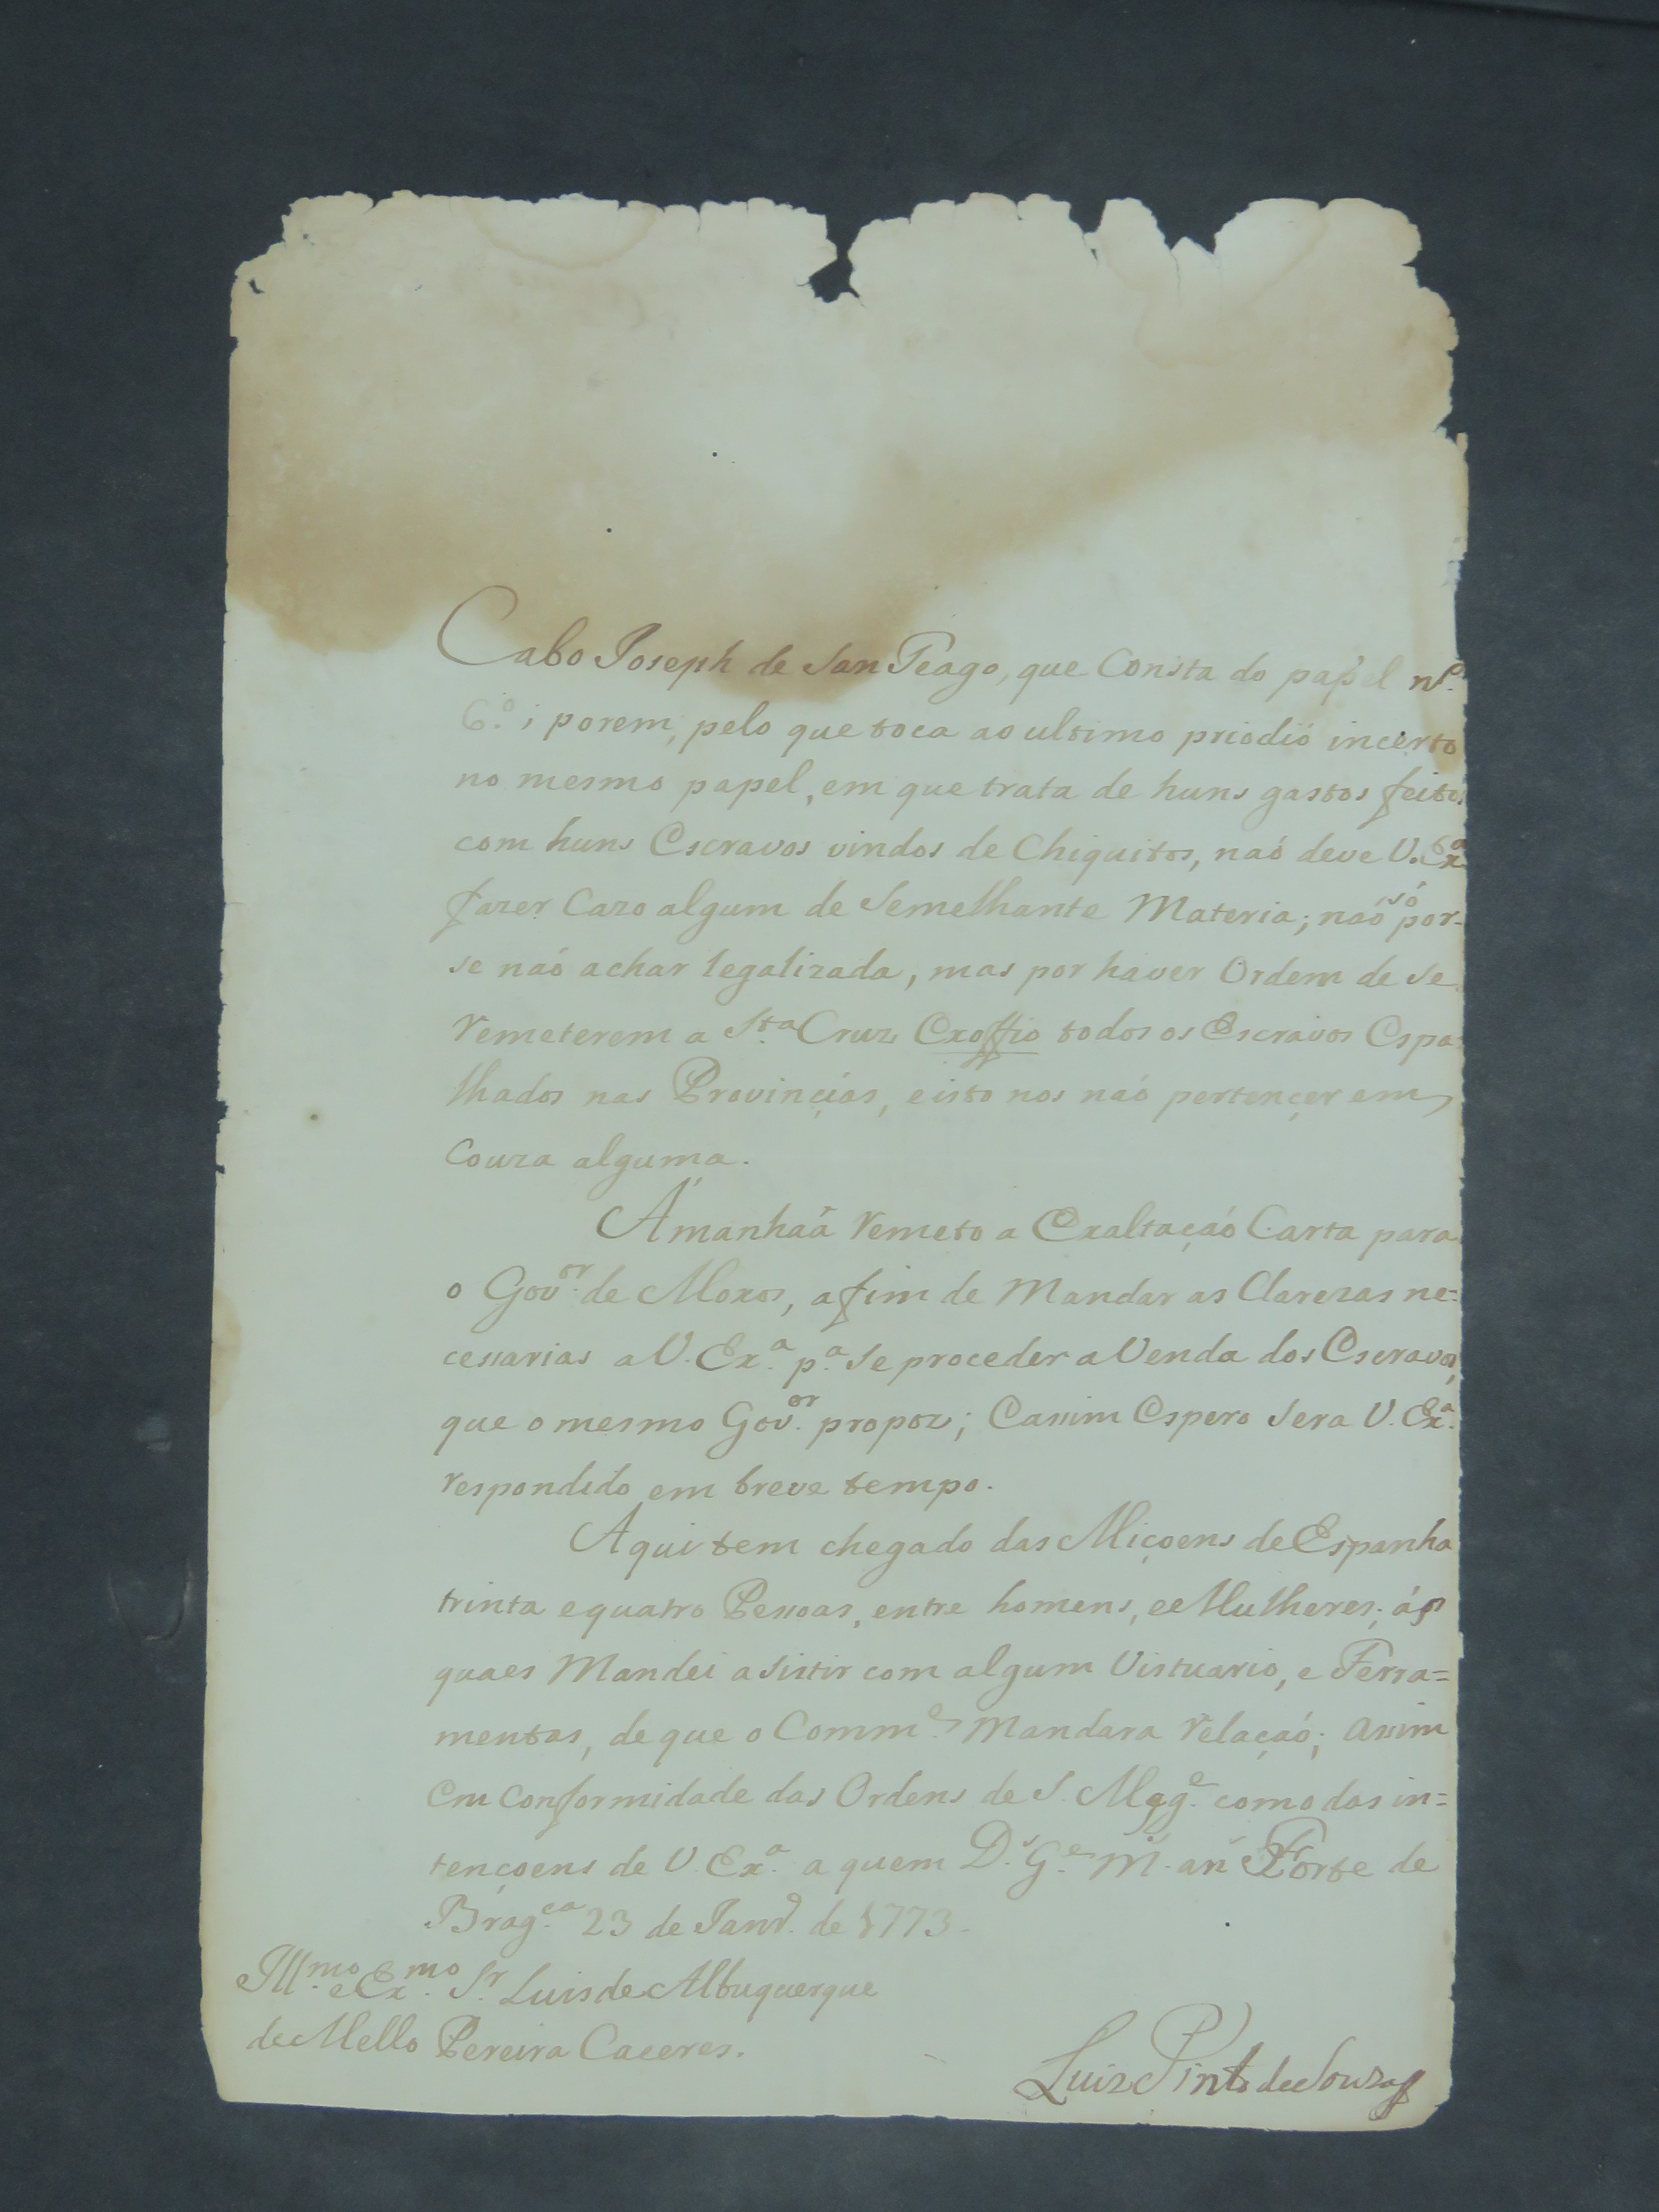 Cabo Joseph de San Teago, que Consta do papel nº.
6.º; porem, pelo que toca ao ultimo priodio incerto
no mesmo papel, em que trata de huns gastos feitos
com huns Escravos vindos de Chiquitos, naó deve V. Exª
fazer Cazo algum de Semelhante Materia; naó só por-
se naó achar legalizada, mas por haver Ordem de Se
remeterem a Sta Cruz Exoffio todos os Escravos Espa
lhados nas Provinçias, e isto nos naó pertençer em
Couza alguma.
Amanhaã remeto a Exaltaçaó Carta para
o Gov.or de Moxos, afim de Mandar as Clarezas ne=
cessarias a V. Ex.a p.a Se proceder a Venda dos Escravos,
que o mesmo Gov.or propoz; Eassim Espero Sera V. Ex.a
respondido em breve tempo.
Aqui tem chegado das Miçoens de Espanha
trinta e quatro Pessoas, entre homens, e Mulheres; ás
quaes Mandei asistir com algum Vistuario, e Ferra=
mentas, de que o Comm.e Mandara relaçaó; assim
em Conformidade das Ordens de S. Mag.e como das in=
tençoens de V. Ex.a a quem D.s G.e M. an.s Forte de
Brag.ca 23 de Janr.o de 1773_
Ill.mo e Ex.mo S.r Luis de Albuquerque
de Mello Pereira Caceres.
Luiz Pinto de Souza